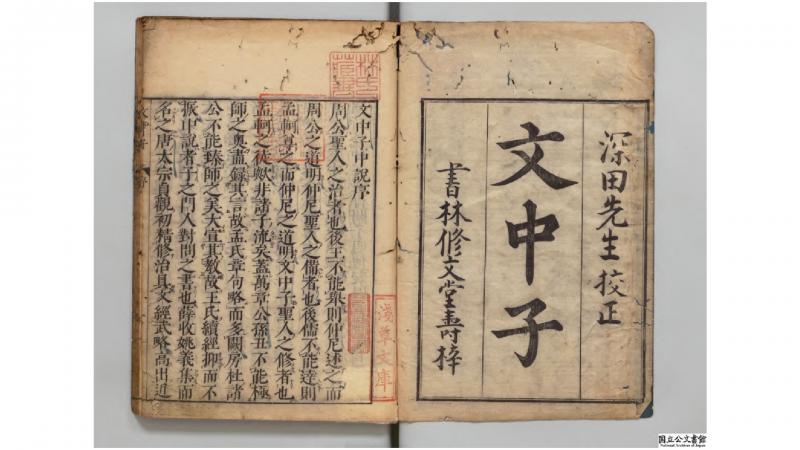 深田先生挍正
文中子
書林修文堂壽梓
淺草文庫
文中子中説序
周公聖人之治者也後王不能舉則仲尼述之而
周公之道明仲尼聖人之備者也後儒不能達則
孟軻尊之而仲尼之道明文中子聖人之修者也
孟軻之徒歟非諸子流矣蓋萬章公孫丑不能極
師之奥盡録其言故孟氏章句略而多闕房杜諸
公不能臻師之美大宣其教故王氏續經抑而不
振中説者子之門人對問之書也薛收姚義集而
名之唐太宗貞觀初精修治具文經武略高出近
国立公文書館
National Archives of Japan